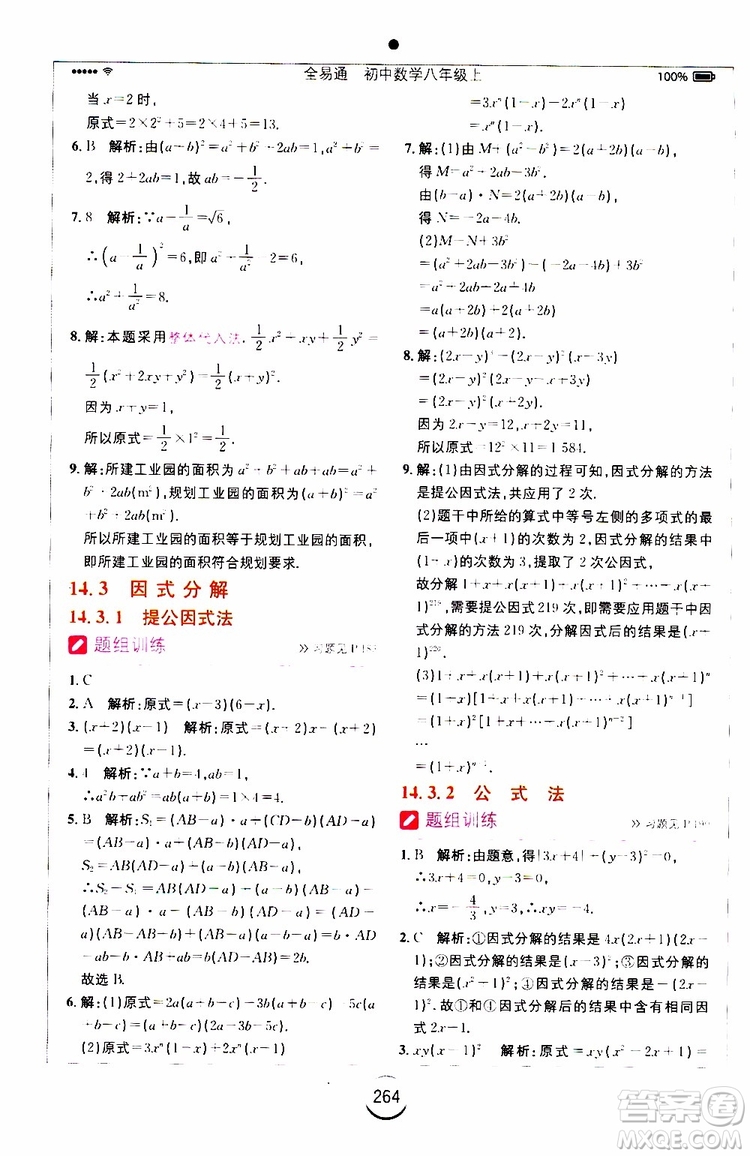 全易通　初中数学八年级上
100%
当 x=2 时,
原式=2×2²+5=2×4+5=13.
6. B　解析:由(a-b)²=a²-2ab+b²=
2,得 2+2ab=1,故 ab=-1/2.
7. 8　解析:∵a-1/a=√6,
∴(a-1/a)²=6,即 a²+1/a²-2=6,
∴a²+1/a²=8.
8. 解:本题采用整体代入法.1/2x²+xy+1/2y²=
1/2(x²+2xy+y²)=1/2(x+y)².
因为 x+y=1,
所以原式=1/2×1²=1/2.
9. 解:所建工业园的面积为 a²+ab+ab+
b²+2ab(m²),规划工业园的面积为(a+b)²=a²+
b²+2ab(m²).
所以所建工业园的面积等于规划工业园的面积,
即所建工业园的面积符合规划要求.
14.3　因式分解
14.3.1　提公因式法
题组训练
1. C
2. A　解析:原式=(x-3)(6-x).
3. (x+2)(x-1)　解析:原式=x(x+2)-(x+2)
=(x+2)(x-1).
4. 4　解析:∵a+b=4,ab=1,
∴a²b+ab²=ab(a+b)=1×4=4.
5. B　解析:S₁=(AB-a)·a+(CD-b)(AD-a)
=(AB-a)·a+(AB-b)(AD-a),
S₂=AB(AD-a)+(a-b)(AB-a),
∴S₂-S₁=AB(AD-a)+(a-b)(AB-a)-
(AB-a)·a-(AB-b)(AD-a)=(AD-a)·
(AB-AB+b)+(AB-a)(a-b-a)=
b·AD-ab-b·AB+ab=b(AD-AB)=2b.
故选 B.
6. 解:(1)原式=2a(a+b-c)-3b(a+b-c)+
5c(a+b-c)=(a+b-c)(2a-3b+5c).
(2)原式=3xⁿ(1-x)-2xⁿ(x-1)
=3xⁿ(1-x)+2xⁿ(1-x)
=xⁿ(1-x).
7. 解:(1)由 M+(a²-b²)=2a²+ab-4b²,
得 M=a²+ab-3b².
由(a-b)·N=2(a+b)(a-b)-
得 N=-2a-4b.
(2)M-N+3b²
=(a²+ab-3b²)-(-2a-4b)+3b²
=a²+ab+2a+4b
=a(a+b)+2(a+2b)
8. 解:(2x-y)⁴-(2x-y)²(x-3y)
=(2x-y)²(2x-y+x+3y)
=(2x-y)²(x+2y).
因为 2x-y=12,x+2y=11,
所以原式=12²×11=1 584.
9. 解:(1)由因式分解的过程可知,因式分解的方法
是提公因式法,共应用了 2 次.
(2)题干中所给的算式中等号左侧的多项式的最
后一项(1+x)的次数为 2,因式分解的结果中
(1+x)的次数为 3,提取了 2 次公因式.
故分解因式 1+x+x(1+x)+…+x(1+
x)²¹⁹,需要提公因式 219 次,即需要应用题干中
的方法 219 次,分解因式后的结果是(1+
x)²²⁰.
(3)1+x+x(1+x)+…+x(1+x)ⁿ
=(1+x)[1+x+x(1+x)+…+x(1+x)ⁿ⁻¹]
=(1+x)²[1+x+…+x(1+x)ⁿ⁻²]
…
=(1+x)ⁿ⁺¹.
14.3.2　公式法
题组训练
1. B　解析:由题意,得|3x+4|+(y-3)²=0,
∴3x+4=0,y-3=0,
∴x=-4/3,y=3,∴xy=-4.
2. C　解析:①因式分解的结果是 4x(2x+1)(2x-
1);②因式分解的结果是(x-1)(x-3);③不能
因式分解;④因式分解的结果是-(2x-1)².
故①和④因式分解后的结果中含有相同因式
2x-1.
3. xy(x-1)²　解析:原式=xy(x²-2x+1)=
264
答案圈
MXQE.COM